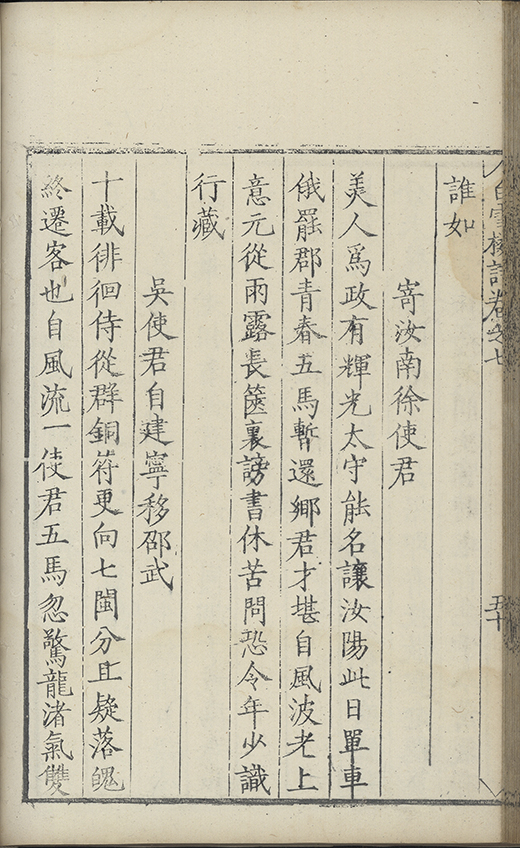 白雪樓詩卷之七
五十
誰如
寄汝南徐使君
美人爲政有輝光太守能名讓汝陽此日單車
俄罷郡青春五馬暫還鄉君才堪自風波老上
意元從雨露長篋裏謗書休苦問恐令年少識
行藏
吳使君自建寧移邵武
十載徘徊侍從群銅符更向七閩分且疑落魄
終遷客也自風流一使君五馬忽驚龍渚氣雙